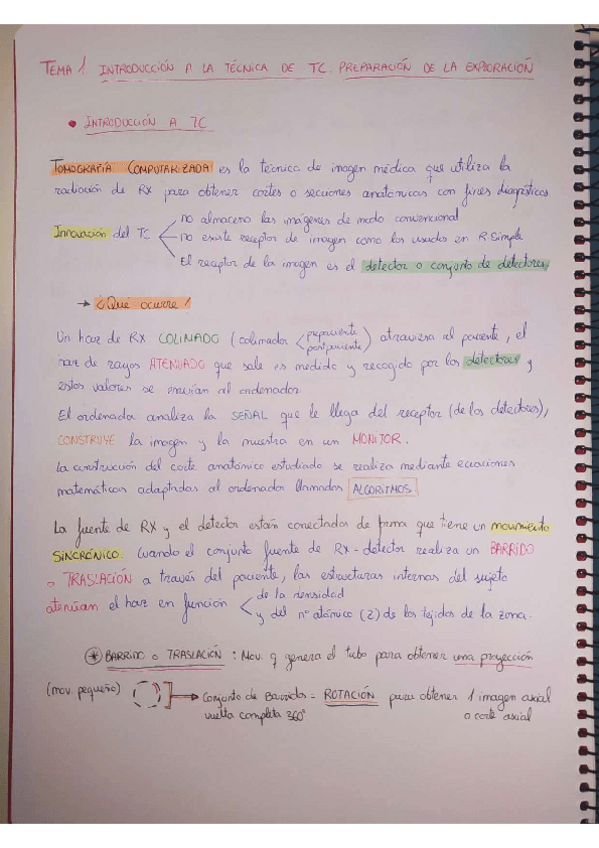 TEMA 1 INTRODUCCIÓN A LA TÉCNICA DE TC. PREPARACIÓN DE LA EXPLORACIÓN
• INTRODUCCIÓN A TC
TOMOGRAFÍA COMPUTARIZADA es la técnica de imagen médica que utiliza la
radiación de Rx para obtener cortes o secciones anatómicas con fines diagnósticos.
no almacena las imágenes de modo convencional
Innovación del TC no existe receptor de imagen como los usados en R Simple
El receptor de la imagen es el detector o conjunto de detectores
→ ¿Qué ocurre?
Un haz de RX COLINADO (colimador prepaciente postpaciente) atraviesa al paciente, el
haz de rayos ATENUADO que sale es medido y recogido por los detectores y
estos valores se envían al ordenador.
El ordenador analiza la SEÑAL que le llega del receptor (de los detectores),
CONSTRUYE la imagen y la muestra en un MONITOR.
La construcción del corte anatómico estudiado se realiza mediante ecuaciones
matemáticas adaptadas al ordenador llamados ALGORITMOS.
La fuente de RX y el detector están conectados de forma que tiene un movimiento
SINCRÓNICO. Cuando el conjunto fuente de Rx-detector realiza un BARRIDO
o TRASLACIÓN a través del paciente, las estructuras internas del sujeto
atenúan el haz en función de la densidad
y del nº atómico (Z) de los tejidos de la zona.
* BARRIDO o TRASLACIÓN: Mov. q genera el tubo para obtener una proyección
(mov. pequeño) → Conjunto de Barridos = ROTACIÓN para obtener 1 imagen axial
vuelta completa 360° o corte axial